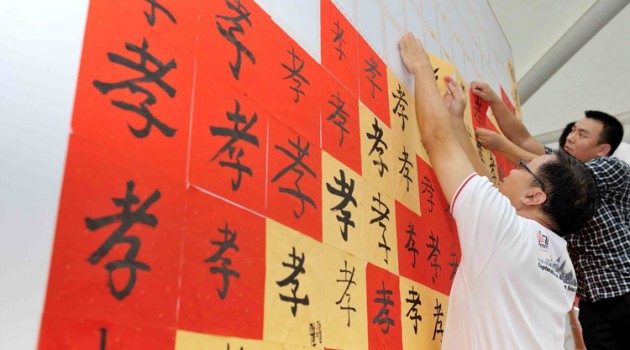 孝 孝 孝
孝 孝 孝 孝 孝 孝
孝 孝 孝 孝 孝 孝 孝
孝 孝 孝 孝 孝 孝 孝